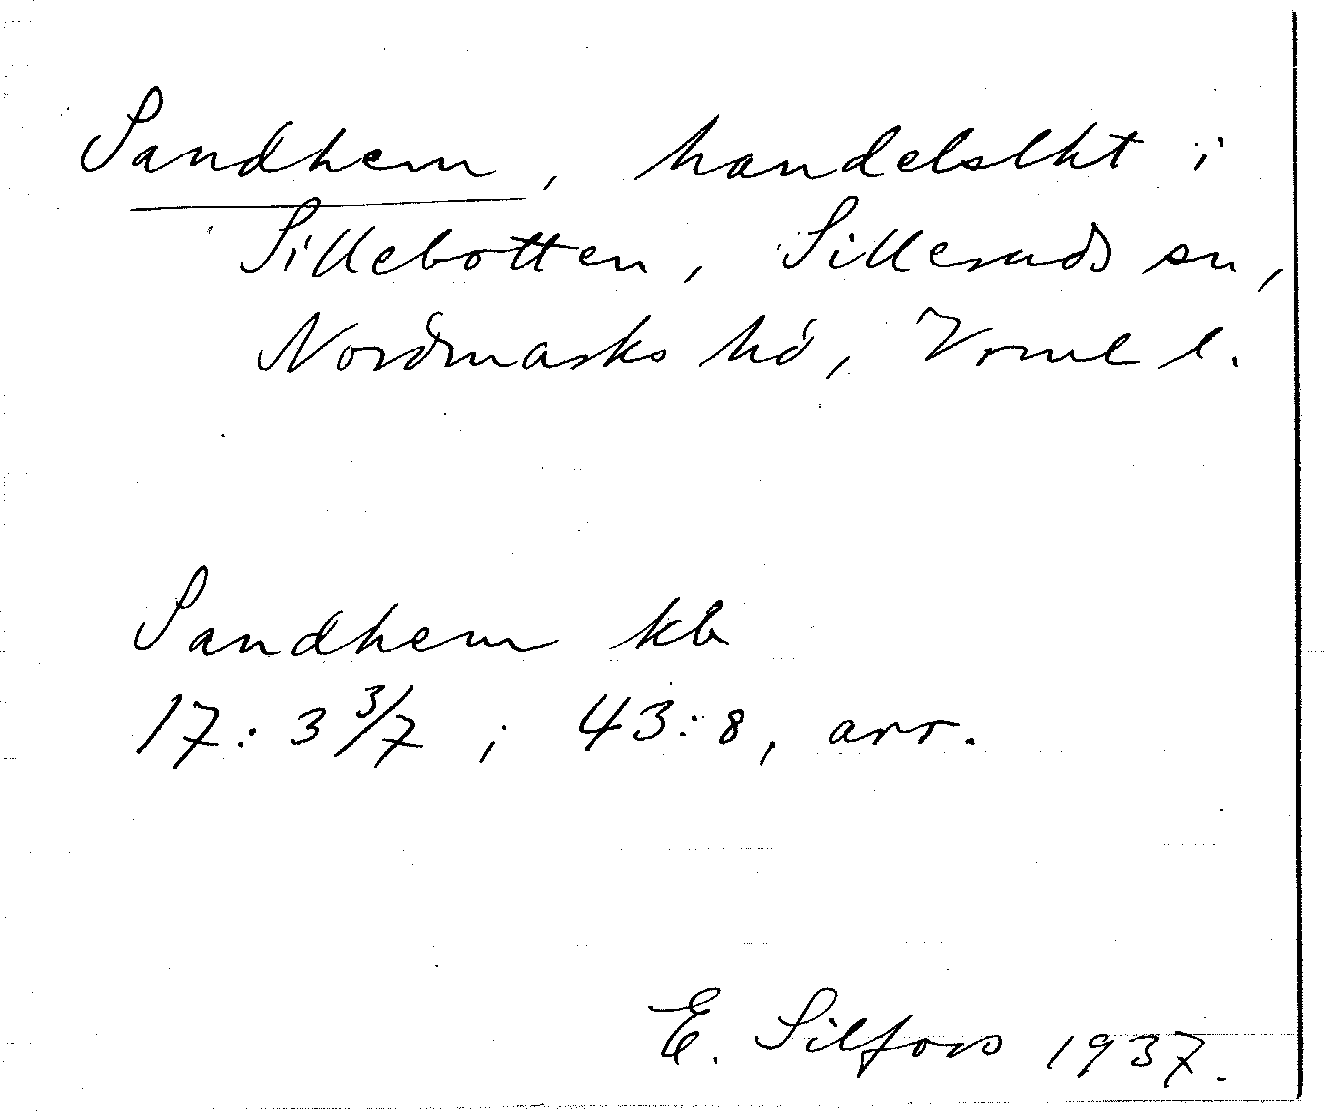 Sandhem, handelslht i
Sillebotten, Silleruds sn,
Nordmarks hd, Vrml l.
Sandhem kb
17: 3 3/7 ; 43: 8, arr.
E. Silfors 1937.